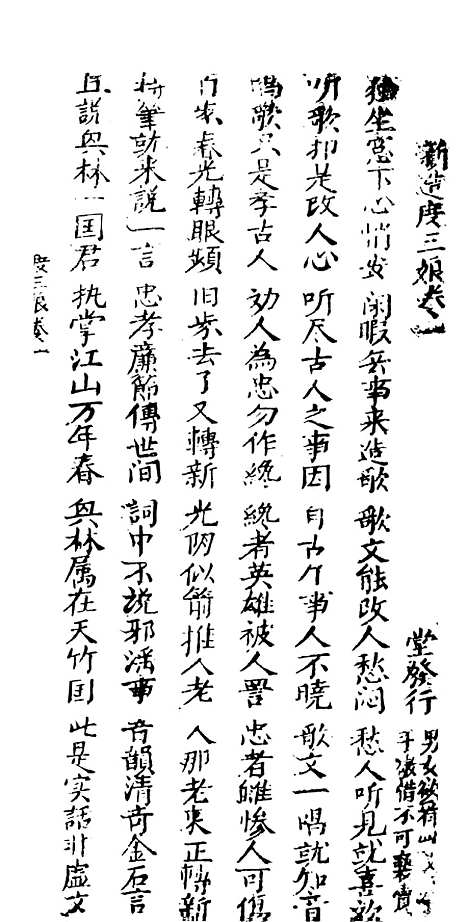 新造度三娘卷一 堂發行
男女欲
手 借不可褻賣
獨坐窓下心悄安 闲暇無事来造歌 歌文能改人愁闷 愁人听見就喜歡
听歌抑是改人心 听尽古人之事因 自古个事人不曉 歌文一唱就知音
唱歌只是孝古人 劝人為忠勿作纔 纔者英雄被人罵 忠者雖惨人可傷
春光轉眼頻 旧歩去了又轉新 光阴似箭推人老 人那老来正轉新
将筆訴来説一言 忠孝廉節傳世间 詞中不説邪滛事 音韻清奇金石言
且説與林一囯君 执掌江山万年春 與林属在天竹囯 此是实話非虚文
度三娘卷一